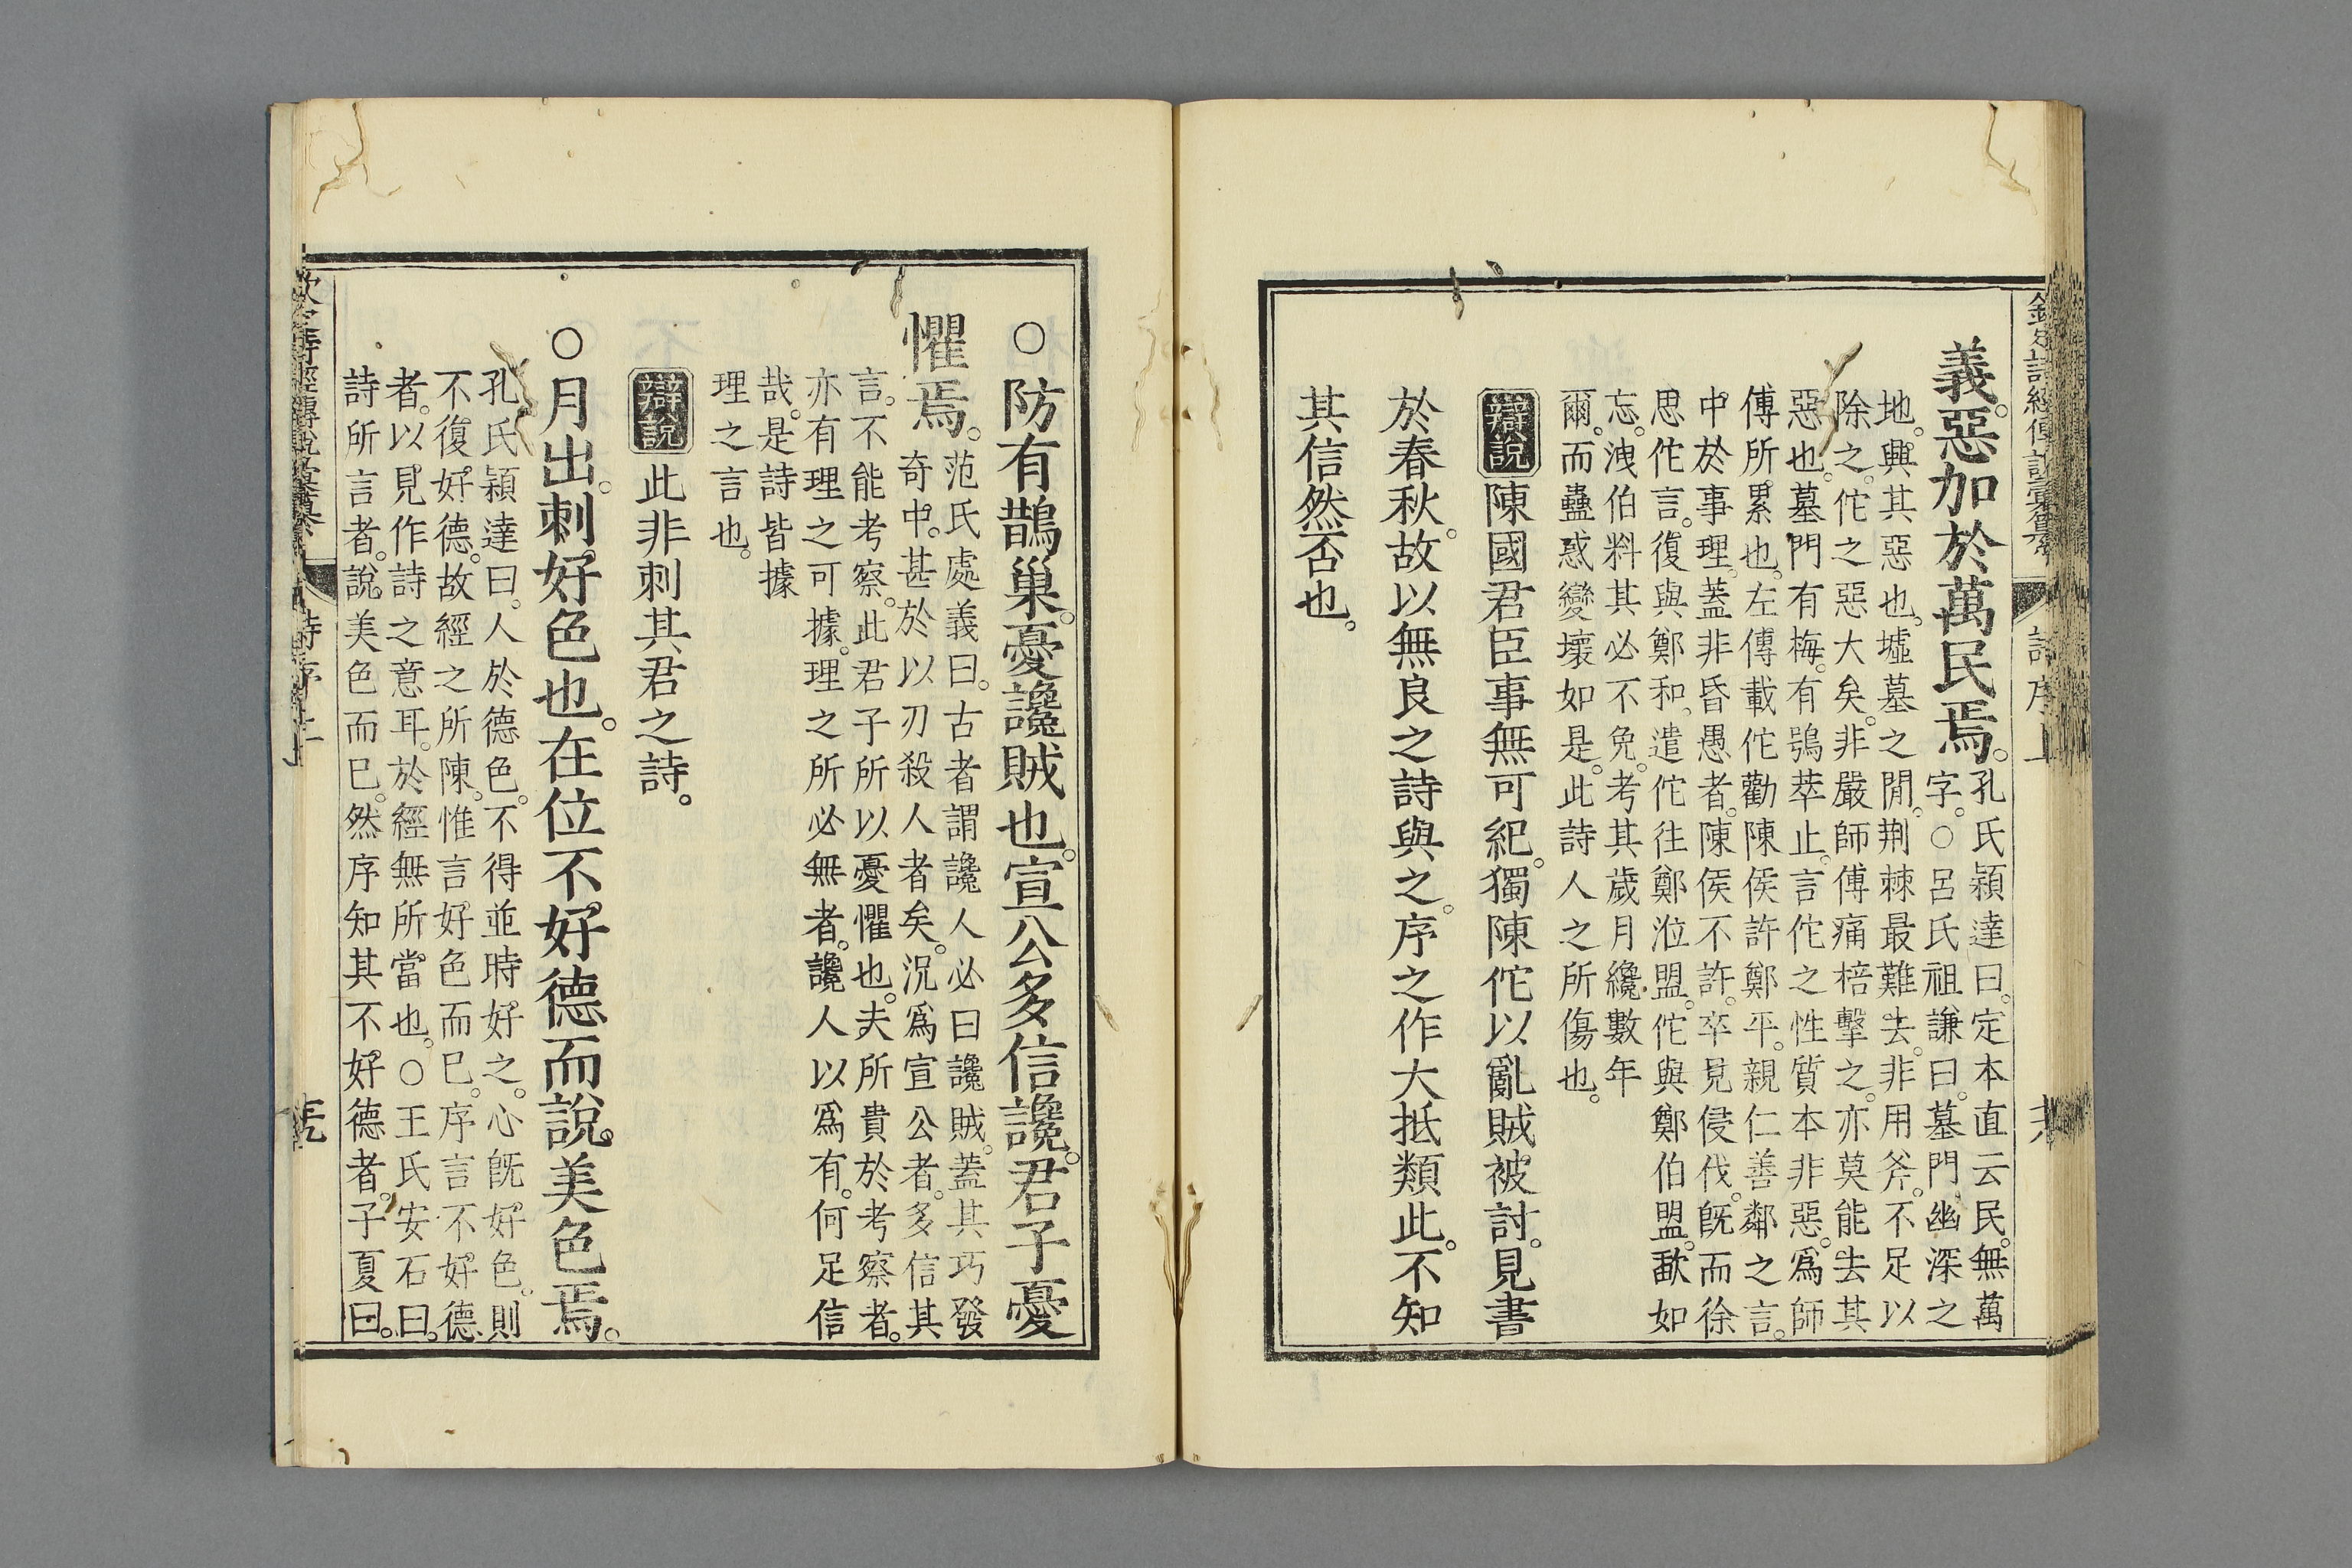 欽定詩經傳說彙纂 詩序上
義。惡加於萬民焉。
孔氏穎達曰。定本直云民。無萬
字。○呂氏祖謙曰。墓門幽深之
地。興其惡也。墟墓之閒。荆棘最難去。非用斧。不足以
除之。佗之惡大矣。非嚴師傅痛棓擊之。亦莫能去其
惡也。墓門有梅。有鴞萃止。言佗之性質本非惡。爲師
傅所累也。左傳載佗勸陳侯許鄭平。親仁善鄰之言。
中於事理。蓋非昏愚者。陳侯不許。卒見侵伐。旣而徐
思佗言。復與鄭和。遣佗往鄭涖盟。佗與鄭伯盟。歃如
忘。洩伯料其必不免。考其歲月纔數年
爾。而蠱惑變壞如是。此詩人之所傷也。
辯說 陳國君臣事無可紀。獨陳佗以亂賊被討。見書
於春秋。故以無良之詩與之。序之作大抵類此。不知
其信然否也。
○防有鵲巢。憂讒賊也。宣公多信讒。君子憂
懼焉。
范氏處義曰。古者謂讒人必曰讒賊。蓋其巧發
奇中。甚於以刃殺人者矣。況爲宣公者。多信其
言。不能考察。此君子所以憂懼也。夫所貴於考察者。
亦有理之可據。理之所必無者。讒人以爲有。何足信
哉。是詩皆據
理之言也。
辯說 此非刺其君之詩。
○月出。刺好色也。在位不好德而說美色焉。
孔氏穎達曰。人於德色。不得並時好之。心旣好色。則
不復好德。故經之所陳。惟言好色而已。序言不好德
者。以見作詩之意耳。於經無所當也。○王氏安石曰。
詩所言者。說美色而已。然序知其不好德者。子夏曰。
欽定詩經傳說彙纂 詩序上